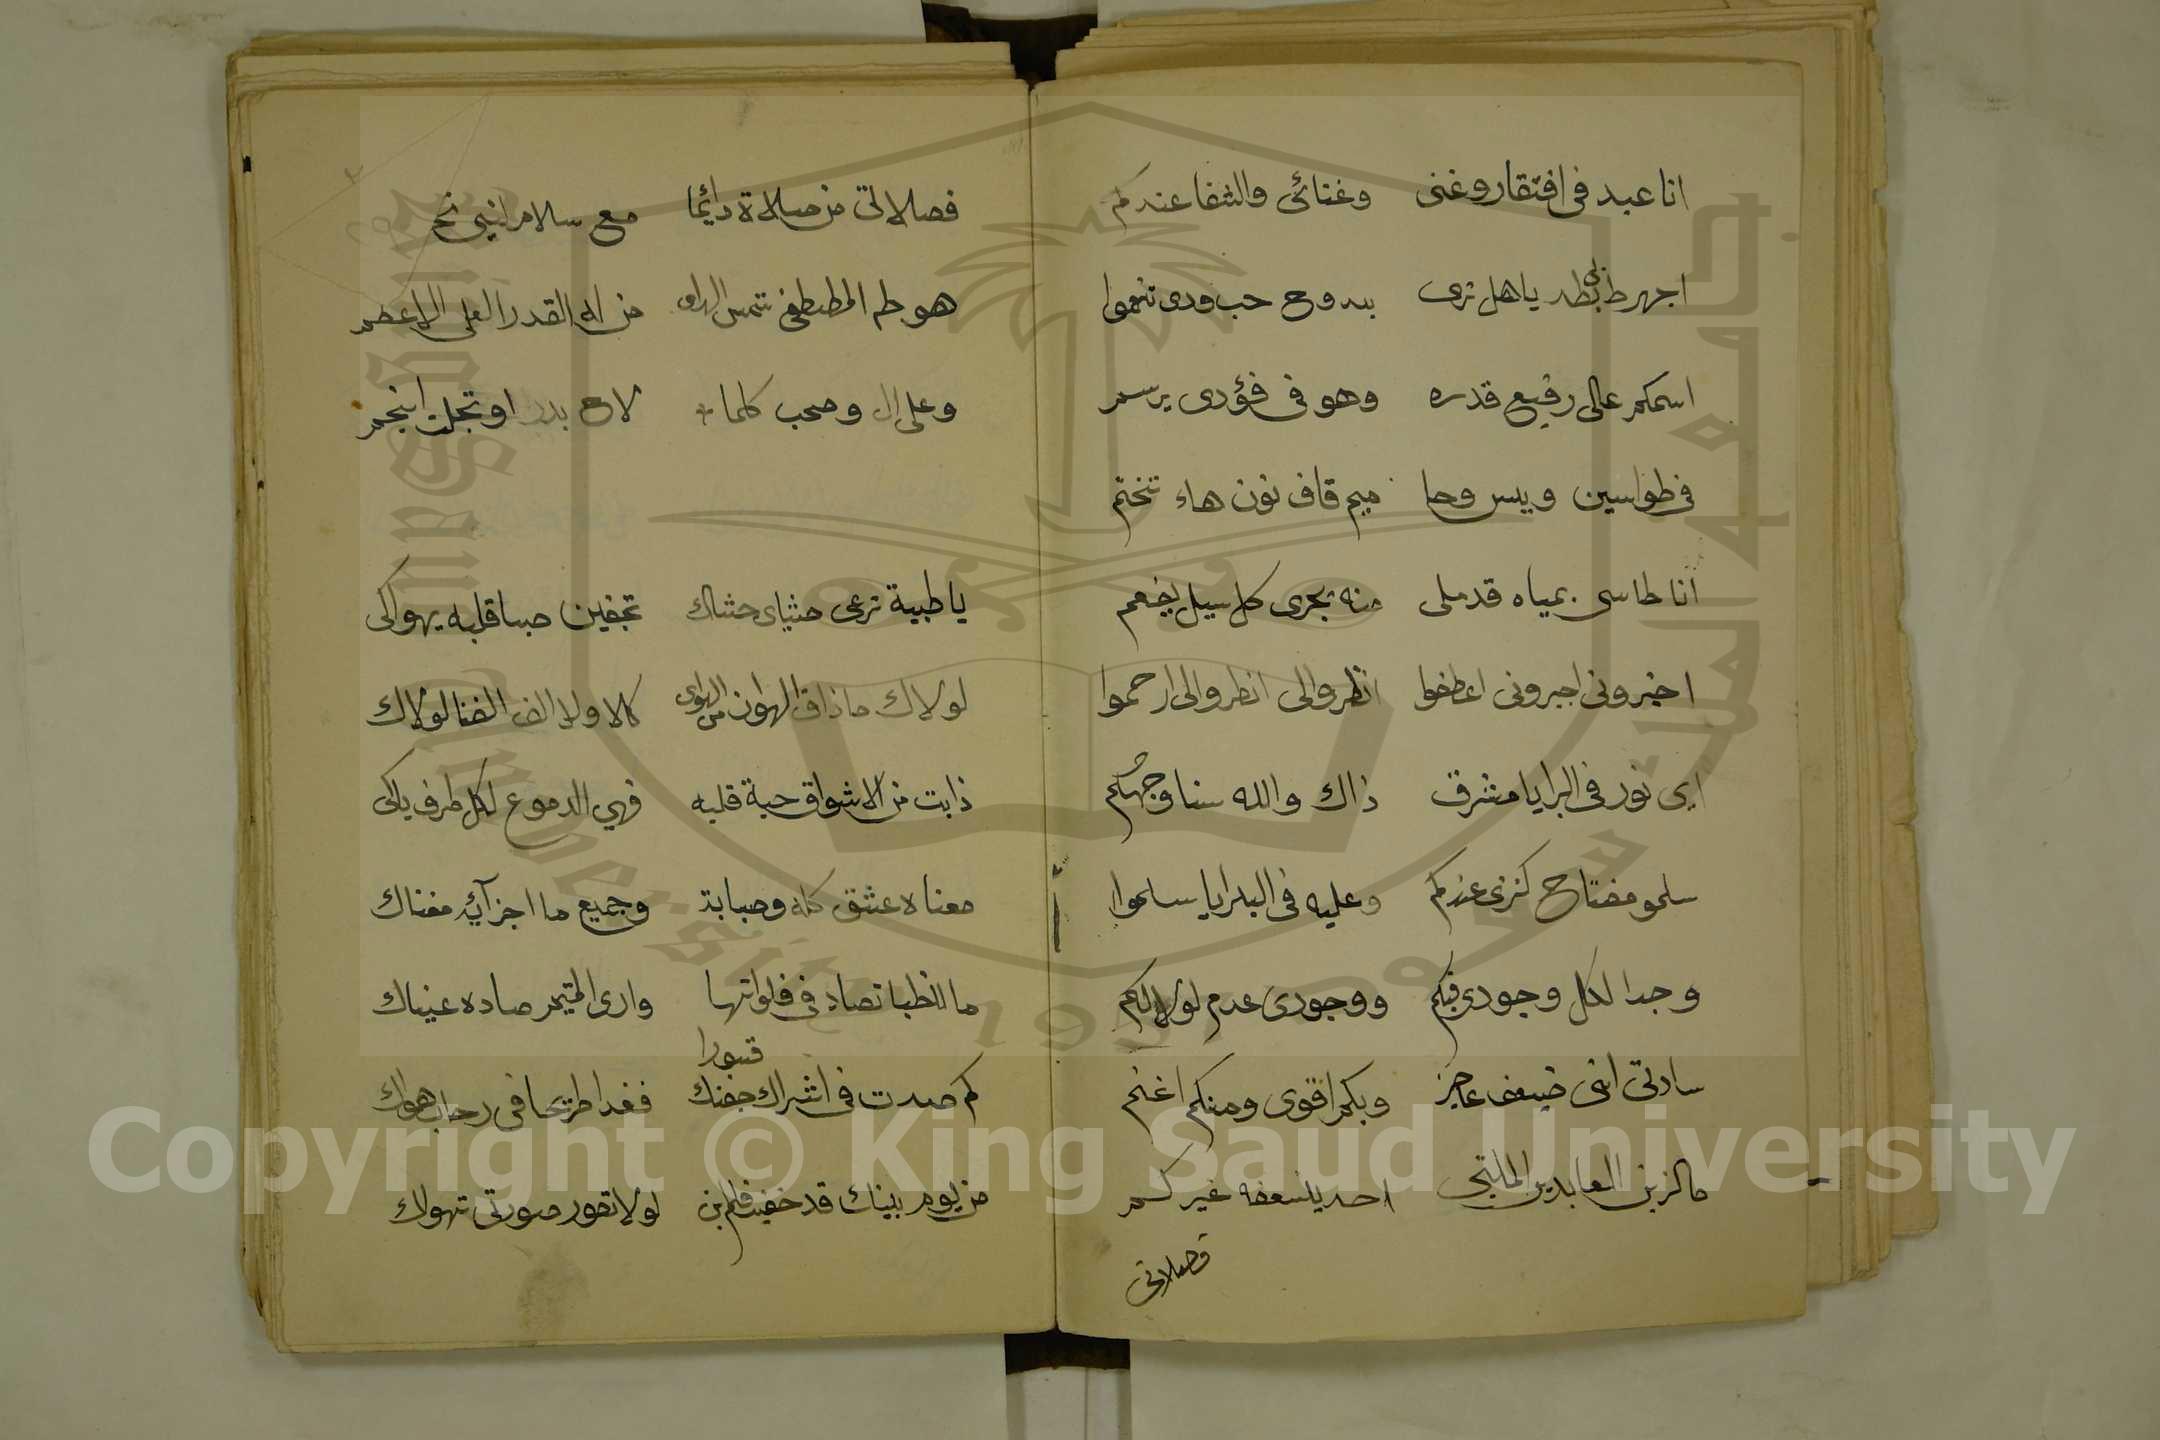 انا عبد في افتقار وغنى وغنائي والشفا عندكم
اجهر طه ياهل ترى حب ودى تنعموا
اسمكم عالى رفيع قدره وهو في فؤدى يرسم
في طواسين ويس وحا ميم قاف نون هاء تختم
انا طاسى بمياه قد ملى منه تجرى كل سيل يفعم
اخبرونى اجبرونى اعطفوا انظروا الى انظروا الى ارحموا
اى نور في البرايا مشرق ذاك والله سنا وجهكم
سلمو مفتاح كنزى عندكم وعليه في البرايا سلموا
وجدا لكل وجودى فيكم ووجودى عدم لولاكم
سادتى اننى ضيعف عاجز وبكم اقوى ومنكم اغنم
ما لزين العابدين الملتجى احد يسعفه غيركم
فصلاتى
فصلاتى من صلاة دائما مع سلام لنبى
هو طه المصطفى شمس الهدى من له القدر العلى الاعظم
وعلى ال وصحب كلما لاح بدر او تجلت انجم
يا ظبية ترعى حشاى حشاك تجفين صبا قلبه يهواكى
لولاك ما ذاق الهوان من الهوى كلا ولا الف الضنا لولاك
ذابت من الاشواق حبة قلبه فهي الدموع لكل طرف باكى
معناه عشق كله وصبابة وجميع ما اجزائه مغناك
ما للظبا تصاد في فلواتها وارى المتيم صاده عيناك
قسورا
كم صدت في اشراك جفنك فغدا طريحا في رحاب هواك
من يوم بينك قد خفيت فلم بن لولا تصور صورتى تهواك
Copyright © King Saud University